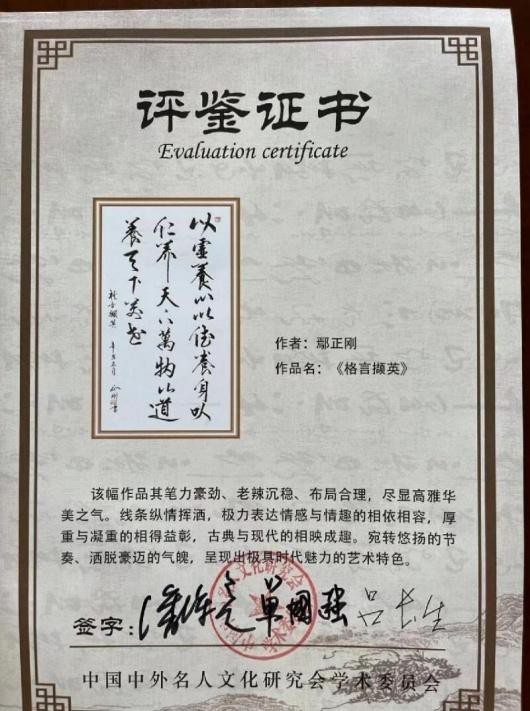 评鉴证书
Evaluation certificate
以虛養心以德養身以
仁养天下萬物以道
養天下萬世
作者：鄢正刚
作品名：《格言撷英》
该幅作品其笔力豪劲、老辣沉稳、布局合理，尽显高雅华
美之气。线条纵情挥洒，极力表达情感与情趣的相依相容，厚
重与凝重的相得益彰，古典与现代的相映成趣。宛转悠扬的节
奏、洒脱豪迈的气魄，呈现出极具时代魅力的艺术特色。
签字：单国强 吕长生
中国中外名人文化研究会学术委员会